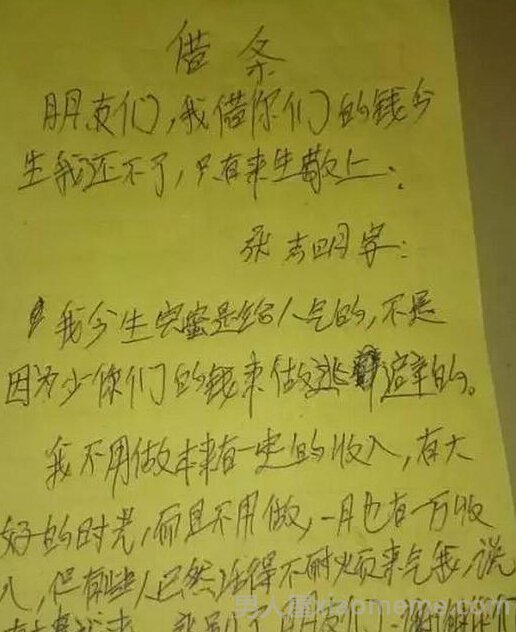 借条
朋友们,我借你们的钱今
生我还不了,只有来生敬上:
张志明字:
我今生完蛋是给人气的,不是
因为少你们的钱来做逃避的。
我不用做本来有一定的收入,有大
好的时光,而且不用做,一月也有一万收
入,但有些人已然活得不耐烦而来气我,说